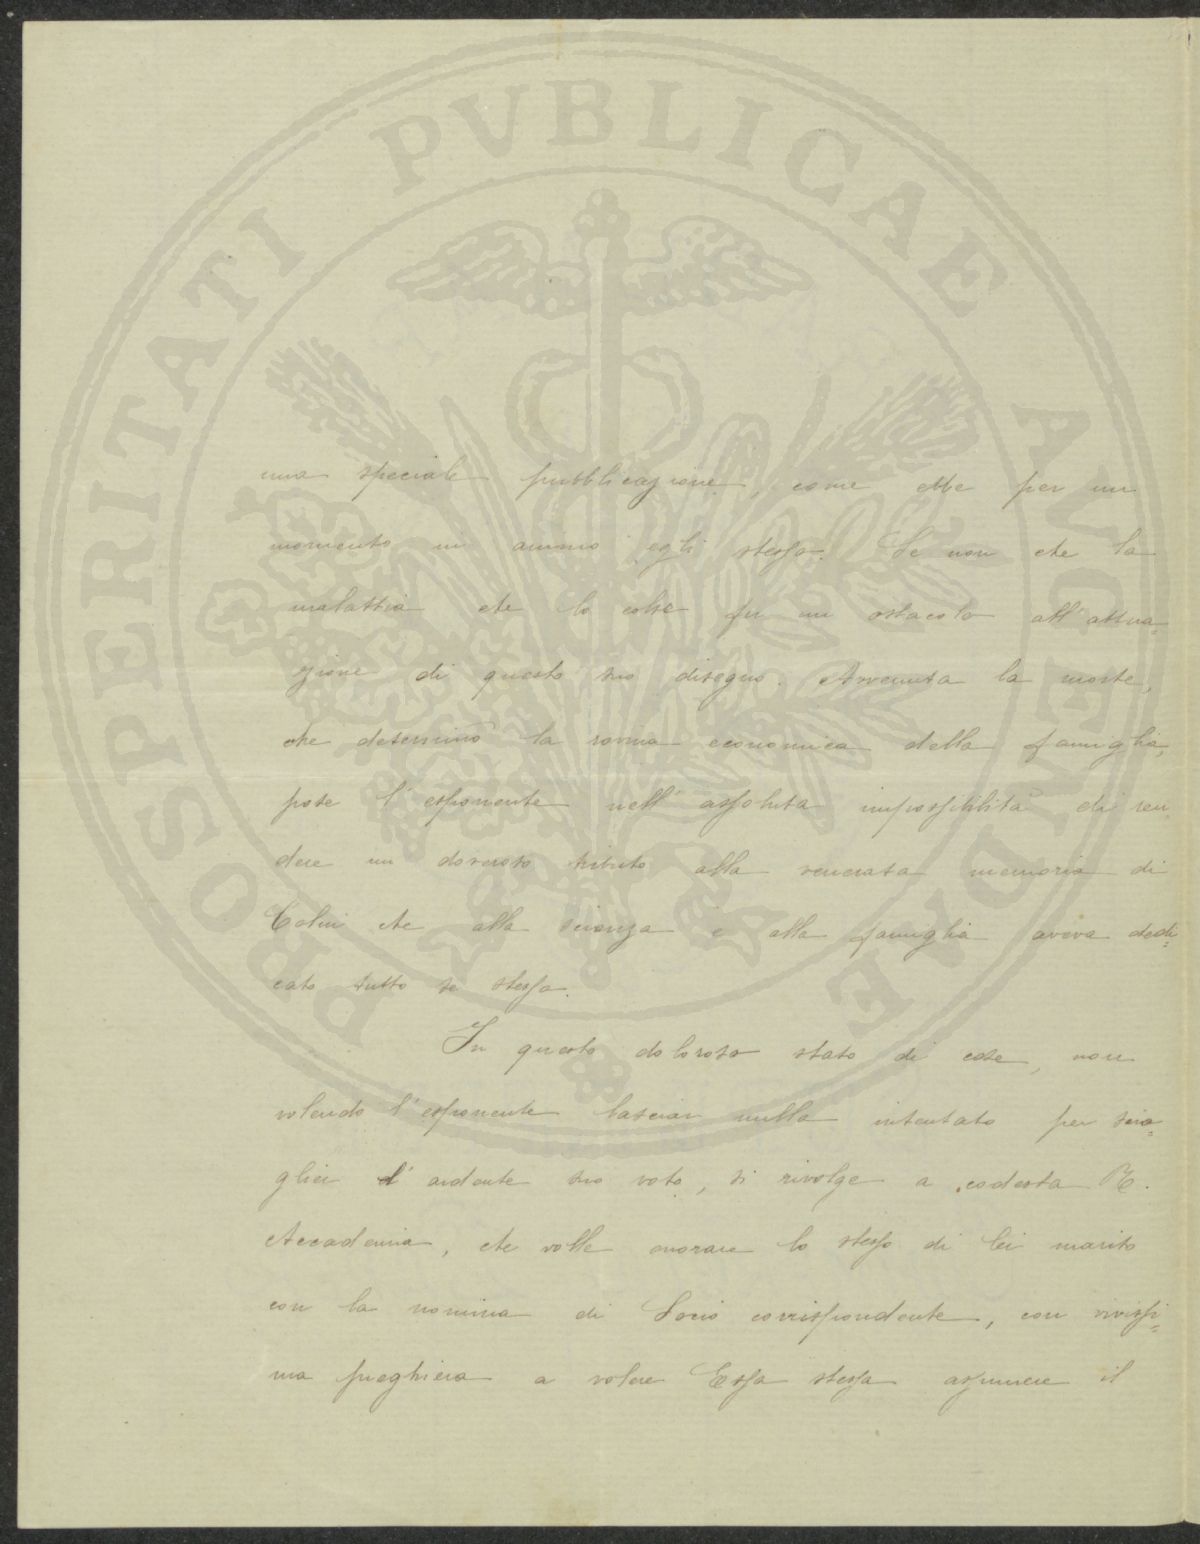 PROSPERITATI PVBLICAE AVGENDAE
una speciale pubblicazione, come ebbe per un
momento in animo egli stesso. Se non che la
malattia che lo colse fu un ostacolo all'attua=
zione di questo suo disegno. Avvenuta la morte,
che determinò la rovina economica della famiglia,
pose l'esponente nell'assoluta impossibilità di ren
dere un doveroso tributo alla venerata memoria di
Colui che alla scienza e alla famiglia aveva dedi=
cato tutto se stesso.
In questo doloroso stato di cose, non
volendo l'esponente lasciar nulla intentato per scio=
glier l'ardente suo voto, si rivolge a codesta R.
Accademia, che volle onorare lo stesso di lei marito
con la nomina di Socio corrispondente, con vivissi=
ma preghiera a volere Essa stessa assumere il